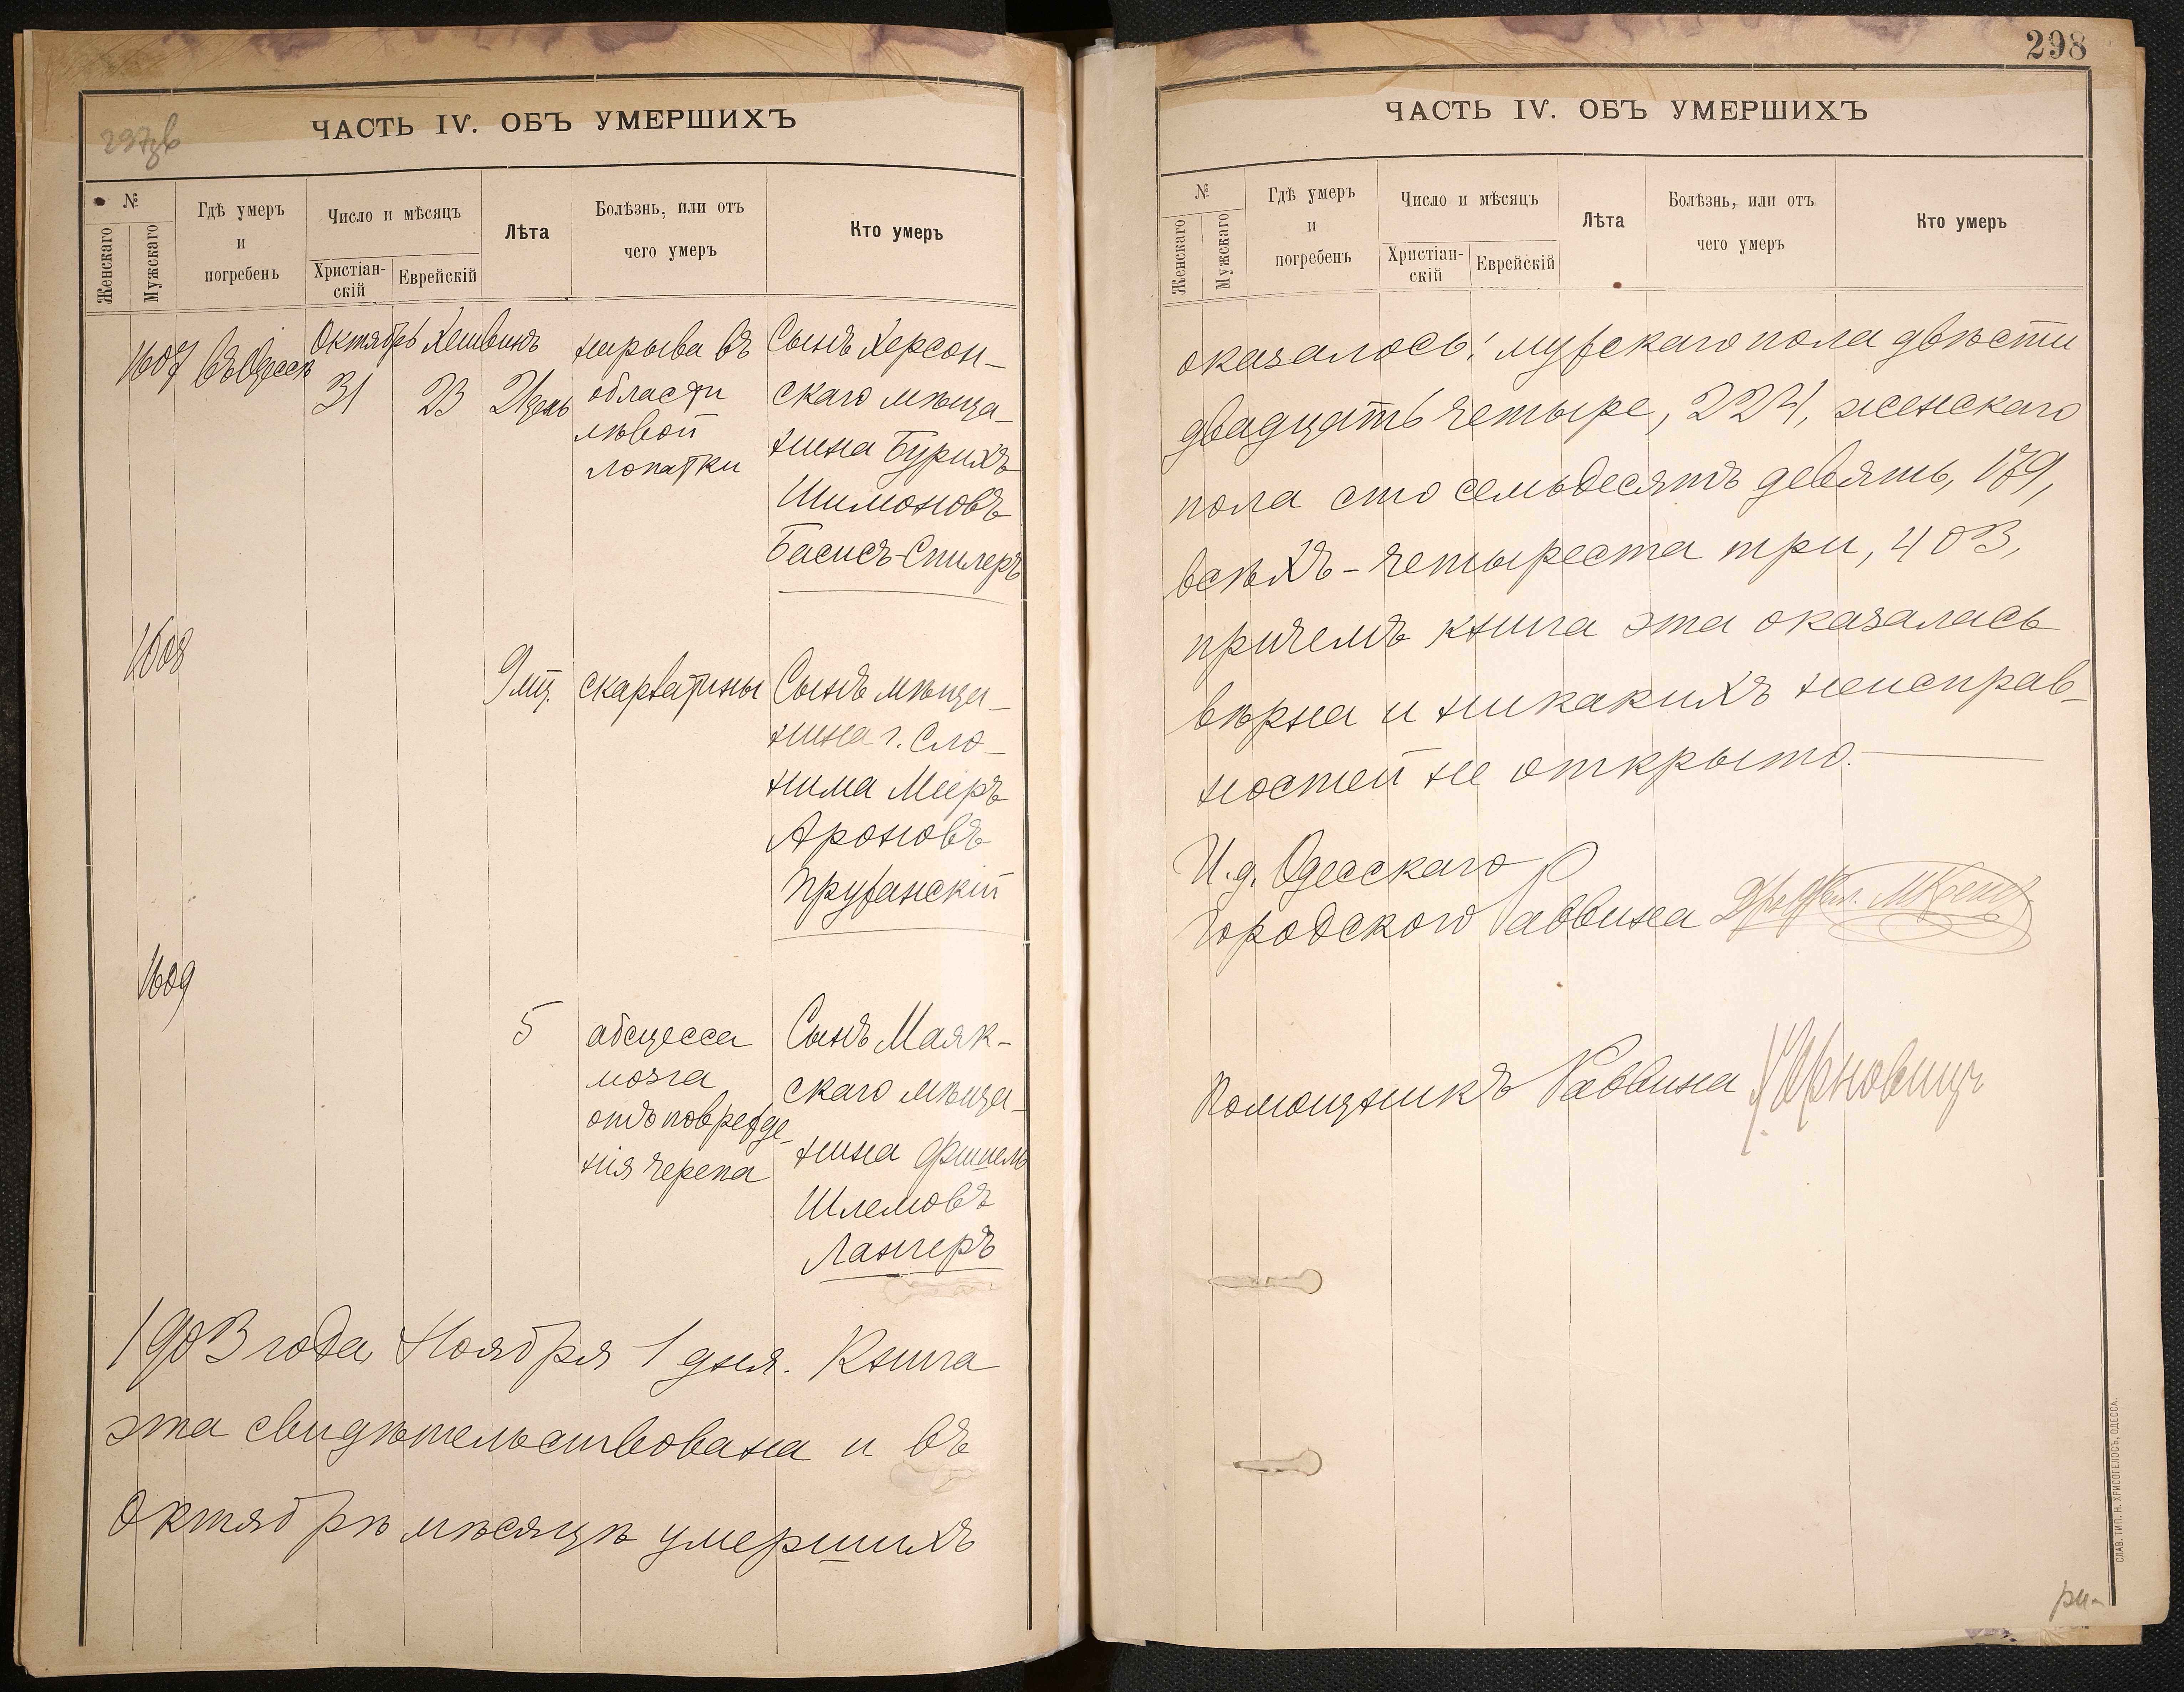 297об
ЧАСТЬ IV. ОБЪ УМЕРШИХЪ
№
Женскаго
Мужскаго
Гдѣ умеръ
и
погребенъ
Число и мѣсяцъ
Христіан-
скій
Еврейскій
Лѣта
Болѣзнь, или отъ
чего умеръ
Кто умеръ
1607
въ Одессѣ
Октябрь
31
Хешвинъ
23
21 день
нарыва въ
области
лѣвой
лопатки
Сынъ Херсон-
скаго мѣща-
нина Бурихъ
Шимоновъ
Басисъ-Спилеръ
1608
9 мц.
скарлатины
Сынъ мѣща-
нина г. Сло-
нима Мееръ
Ароновъ
Пружанскій
1609
5
абсцесса
мозга
отъ поврежде-
нія черепа
Сынъ Маяк-
скаго мѣща-
нина Фишель
Шлемовъ
Лангеръ
1903 года Ноября 1 дня. Книга
эта свидѣтельствована и въ
Октябрѣ мѣсяцѣ умершихъ
298
ЧАСТЬ IV. ОБЪ УМЕРШИХЪ
№
Женскаго
Мужскаго
Гдѣ умеръ
и
погребенъ
Число и мѣсяцъ
Христіан-
скій
Еврейскій
Лѣта
Болѣзнь, или отъ
чего умеръ
Кто умеръ
оказалось: мужскаго пола двѣсти
двадцать четыре, 224, женскаго
пола сто семьдесятъ девять, 179,
всѣхъ - четыреста три, 403,
причемъ книга эта оказалась
вѣрна и никакихъ неисправ-
ностей не открыто.
И. д. Одесскаго
Городского Раввина
Помощникъ Раввина
СЛАВ. ТИП. Н. ХРИСОГЕЛОСЪ, ОДЕССА.